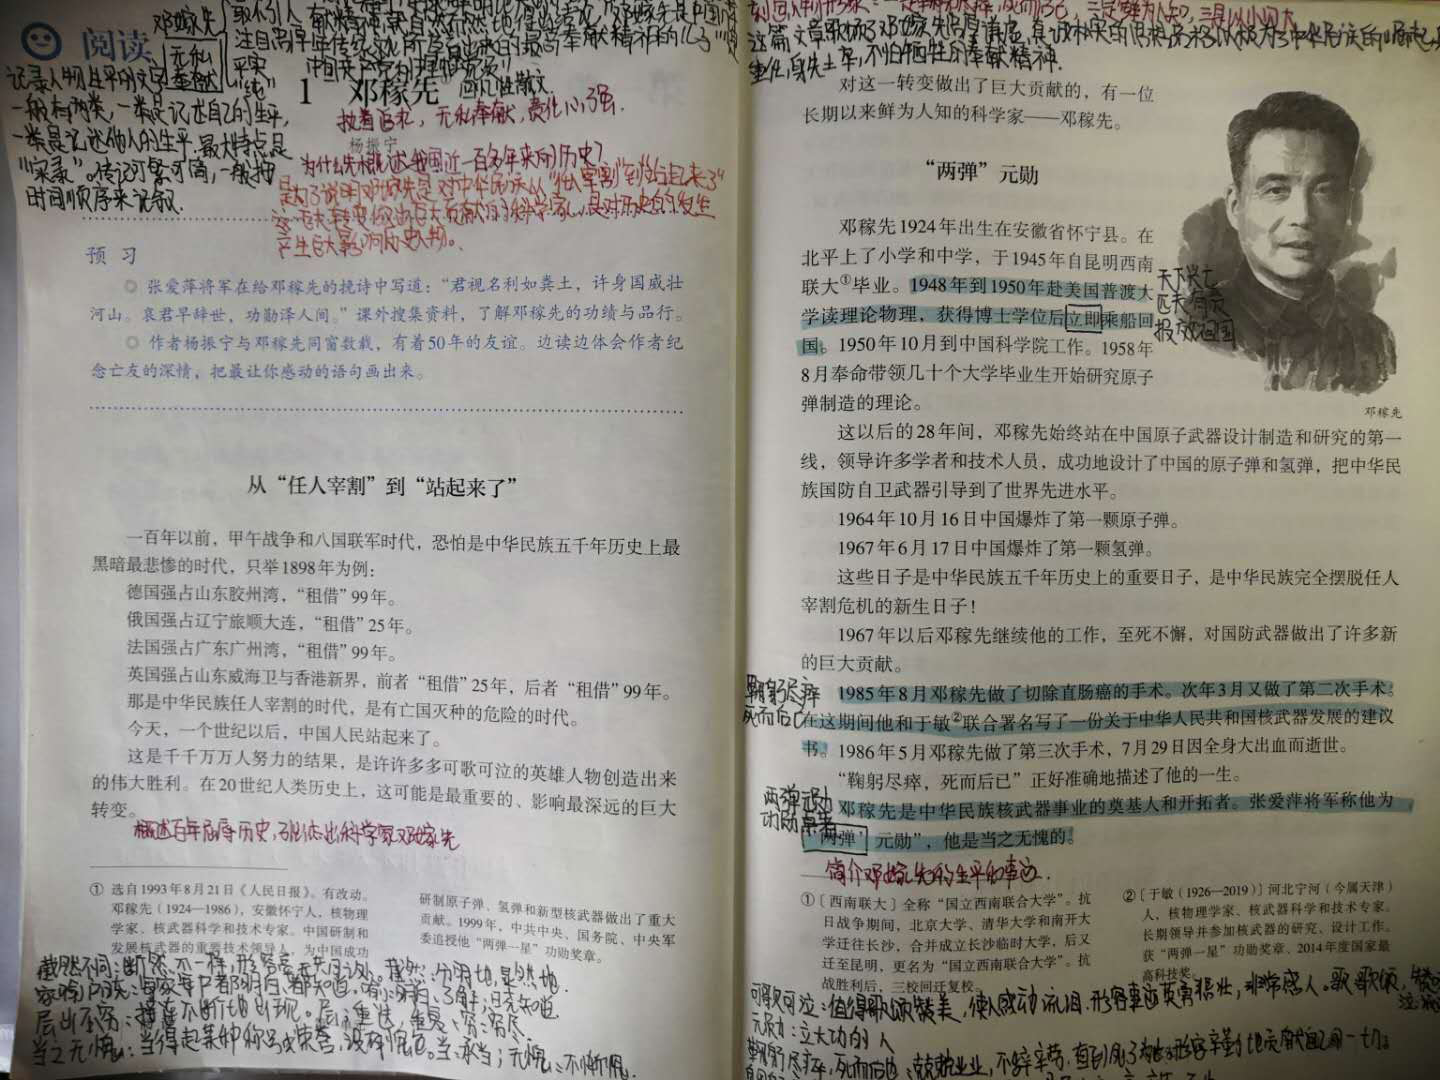 阅读
邓稼先
无私
奉献
取不引人
注目
忠厚
平实
“纯”
记录人物生平的文字
一般有两类，一类是记述自己的生平，
一类是记述他人的生平。最大特点是
“实录”。传记可繁可简，一般按
时间顺序来记叙。
1 邓稼先
回忆性散文
执着追求，无私奉献，责任心强.
杨振宁
为什么先概述我国近一百多年来的历史？
是为了说明邓稼先是对中华民族从“任人宰割”到“站起来了”
这一巨大转变做出巨大贡献的科学家，是对历史的发生
产生巨大影响的历史人物。
预 习
◎ 张爱萍将军在给邓稼先的挽诗中写道：“君视名利如粪土，许身国威壮
河山。哀君早辞世，功勋泽人间。”课外搜集资料，了解邓稼先的功绩与品行。
◎ 作者杨振宁与邓稼先同窗数载，有着50年的友谊。边读边体会作者纪
念亡友的深情，把最让你感动的语句画出来。
从“任人宰割”到“站起来了”
一百年以前，甲午战争和八国联军时代，恐怕是中华民族五千年历史上最
黑暗最悲惨的时代，只举1898年为例：
德国强占山东胶州湾，“租借”99年。
俄国强占辽宁旅顺大连，“租借”25年。
法国强占广东广州湾，“租借”99年。
英国强占山东威海卫与香港新界，前者“租借”25年，后者“租借”99年。
那是中华民族任人宰割的时代，是有亡国灭种的危险的时代。
今天，一个世纪以后，中国人民站起来了。
这是千千万万人努力的结果，是许许多多可歌可泣的英雄人物创造出来
的伟大胜利。在20世纪人类历史上，这可能是最重要的、影响最深远的巨大
转变。
概述百年屈辱历史，引出杰出科学家邓稼先
① 选自1993年8月21日《人民日报》。有改动。
邓稼先（1924—1986），安徽怀宁人，核物理
学家、核武器科学和技术专家。中国研制和
发展核武器的重要技术领导人，为中国成功
研制原子弹、氢弹和新型核武器做出了重大
贡献。1999年，中共中央、国务院、中央军
委追授他“两弹一星”功勋奖章。
截然不同：断然不一样，形容毫无共同之处。截然：分明地，显然地
家喻户晓：每家每户都明白，都知道。喻：明白，了解；晓：知道
层出不穷：接连不断地出现。层：重迭，重复；穷：穷尽
当之无愧：当得起某种称号或荣誉，没有愧色。当：承当；无愧：不惭愧.
这篇文章歌颂了邓稼先忠厚谦虚，真诚朴实的
任，身先士卒，不怕牺牲的奉献精神.
对这一转变做出了巨大贡献的，有一位
长期以来鲜为人知的科学家——邓稼先。
“两弹”元勋
邓稼先1924年出生在安徽省怀宁县。在
北平上了小学和中学，于1945年自昆明西南
联大①毕业。1948年到1950年赴美国普渡大
学读理论物理，获得博士学位后立即乘船回
国。1950年10月到中国科学院工作。1958年
8月奉命带领几十个大学毕业生开始研究原子
弹制造的理论。
天下兴亡
匹夫有责
报效祖国
邓稼先
这以后的28年间，邓稼先始终站在中国原子武器设计制造和研究的第一
线，领导许多学者和技术人员，成功地设计了中国的原子弹和氢弹，把中华民
族国防自卫武器引导到了世界先进水平。
1964年10月16日中国爆炸了第一颗原子弹。
1967年6月17日中国爆炸了第一颗氢弹。
这些日子是中华民族五千年历史上的重要日子，是中华民族完全摆脱任人
宰割危机的新生日子！
1967年以后邓稼先继续他的工作，至死不懈，对国防武器做出了许多新
的巨大贡献。
鞠躬尽瘁
死而后已
1985年8月邓稼先做了切除直肠癌的手术。次年3月又做了第二次手术。
在这期间他和于敏②联合署名写了一份关于中华人民共和国核武器发展的建议
书。1986年5月邓稼先做了第三次手术，7月29日因全身大出血而逝世。
“鞠躬尽瘁，死而后已”正好准确地描述了他的一生。
两弹元勋
功勋卓著
邓稼先是中华民族核武器事业的奠基人和开拓者。张爱萍将军称他为
“‘两弹’元勋”，他是当之无愧的。
简介邓稼先的生平和事迹.
①〔西南联大〕全称“国立西南联合大学”。抗
日战争期间，北京大学、清华大学和南开大
学迁往长沙，合并成立长沙临时大学，后又
迁至昆明，更名为“国立西南联合大学”。抗
战胜利后，三校回迁复校。
②〔于敏（1926—2019）〕河北宁河（今属天津）
人，核物理学家、核武器科学和技术专家。
长期领导并参加核武器的研究、设计工作。
获“两弹一星”功勋奖章、2014年度国家最
高科技奖。
可歌可泣：值得歌颂赞美，使人感动流泪，形容事迹英勇悲壮，非常感人。歌：歌颂，赞美
元勋：立大功的人
鞠躬尽瘁，死而后已：兢兢业业，不辞辛劳，直到死了为止。形容辛勤地贡献自己的一切。